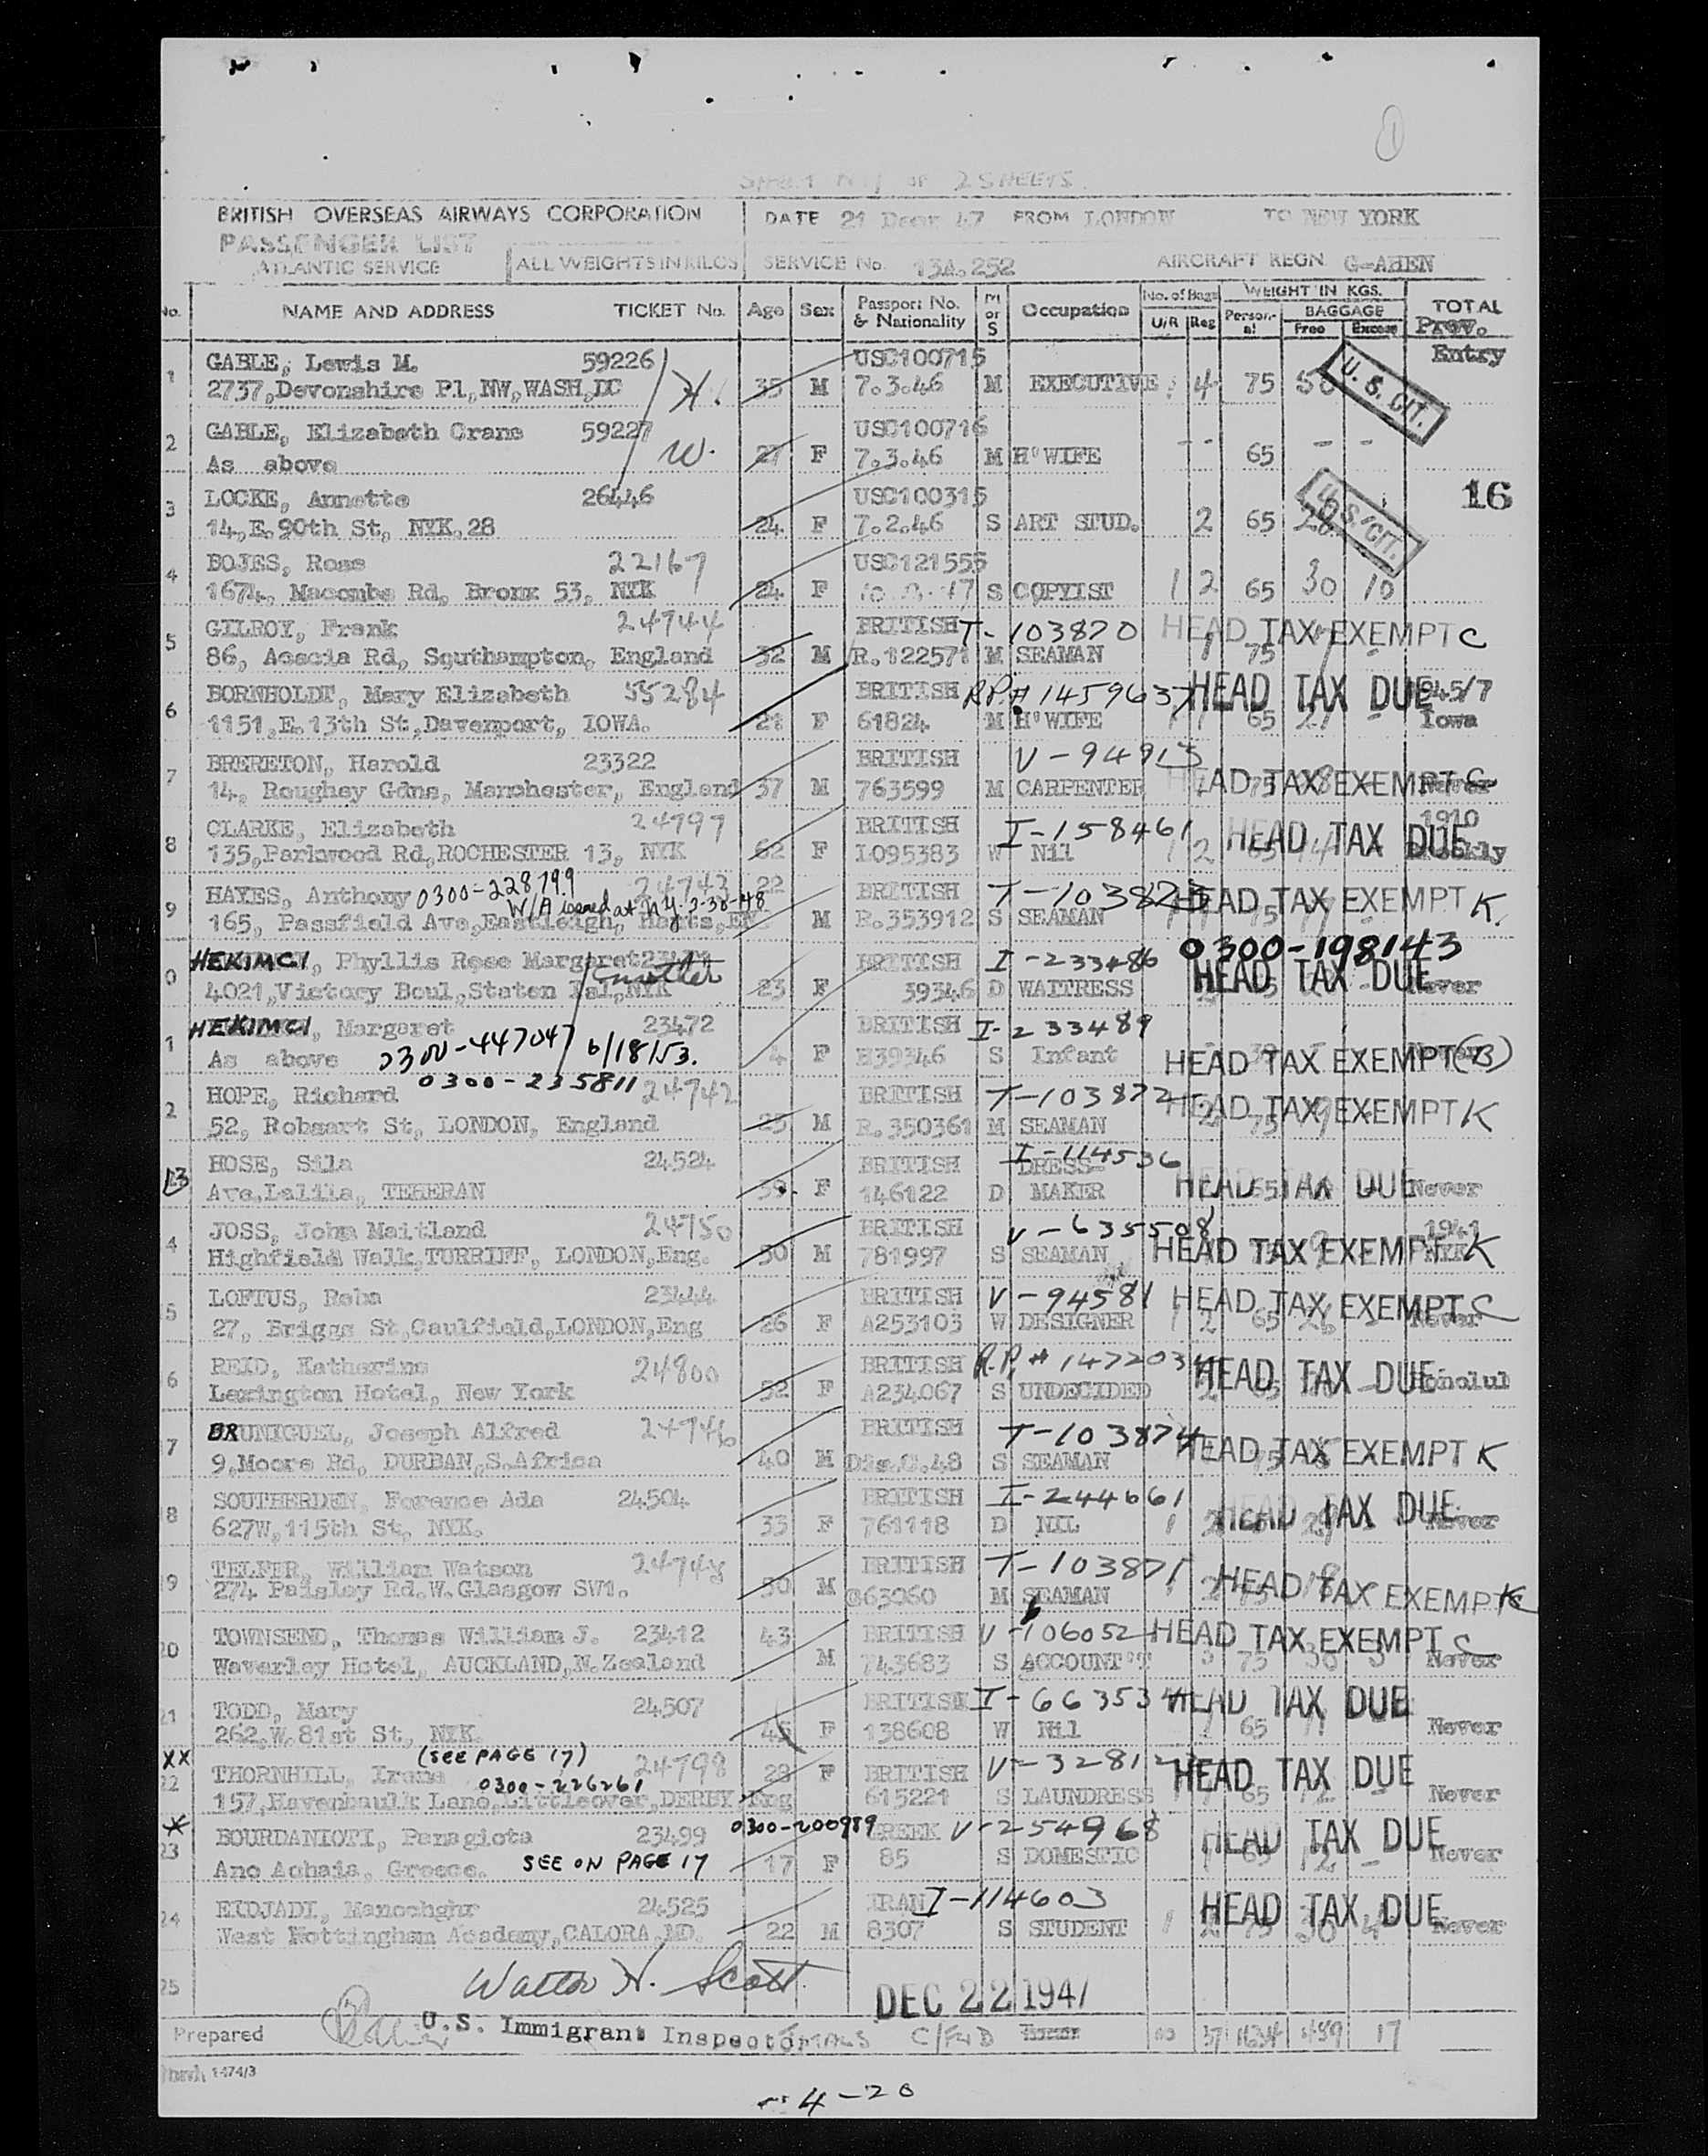 1
SHEET No 1 OF 2 SHEETS
BRITISH OVERSEAS AIRWAYS CORPORATION DATE 21 Decr 47 FROM LONDON TO NEW YORK
PASSENGER LIST
ATLANTIC SERVICE ALL WEIGHTS IN KILOS SERVICE No. 13A.252 AIRCRAFT REGN. G-AHEN
No. NAME AND ADDRESS TICKET No. Age Sex Passport No. & Nationality M or S Occupation No. of Bags U/R Reg WEIGHT IN KGS. Person-al BAGGAGE Free Excess TOTAL
Prev. Entry
1 GABLE, Lewis M. 59226 H. USC100715 U. S. CIT.
2737,Devonshire Pl,NW,WASH,DC 35 M 7.3.46 M EXECUTIVE 4 75 50
2 GABLE, Elizabeth Crane 59227 W. USC100716
As above 27 F 7.3.46 M H'WIFE - - 65 - -
3 LOCKE, Annette 26446 USC100315 U. S. CIT. 16
14,E.90th St, NYK,28 24 F 7.2.46 S ART STUD. 2 65 28
4 BOJES, Rose 22167 USC121555
1674, Macombs Rd, Bronx 53, NYK 24 F S COPYIST 1 2 65 30 10
5 GILROY, Frank 24744 BRITISH T-103870 HEAD TAX EXEMPT C
86, Acacia Rd, Southampton, England 32 M R.122571 M SEAMAN 1 75 -
6 BORNHOLDT, Mary Elizabeth 55284 BRITISH R.P.# 1459637 HEAD TAX DUE 1945/7
1151,E.13th St,Davenport, IOWA. 21 F 61824 M H'WIFE 1 1 65 21 - Iowa
7 BRERETON, Harold 23322 BRITISH V-94913
14, Roughey Gdns, Manchester, England 37 M 763599 M CARPENTER HEAD TAX EXEMPT C Never
8 CLARKE, Elizabeth 24797 BRITISH I-158461 HEAD TAX DUE 1910
135,Parkwood Rd,ROCHESTER 13, NYK 62 F L095383 W Nil 1 2 65
9 HAYES, Anthony 0300-228799 24743 22 BRITISH T-103873 HEAD TAX EXEMPT K.
W/A issued at N.Y. 3-30-48
165, Passfield Ave,Eastleigh, Hants,EN M R.353912 S SEAMAN 1 75
0300-198143
0 HEKIMCI, Phyllis Rose Margaret 23471 BRITISH I-233486 HEAD TAX DUE
4021,Victory Boul,Staten Isl,NYK mother 23 F 39346 D WAITRESS Never
1 HEKIMCI, Margaret 23472 BRITISH I-233489
As above 0300-447047 6/18/53. 4 F H39346 S Infant HEAD TAX EXEMPT (B)
0300-235811
2 HOPE, Richard 24742 BRITISH T-103872 HEAD TAX EXEMPT K
52, Robsart St, LONDON, England 25 M R.350361 M SEAMAN 75
13 HOSE, Sila 24524 BRITISH I-114536
Ave,Lalila, TEHERAN 39 F 146122 D DRESS- MAKER HEAD TAX DUE Never
4 JOSS, John Maitland 24750 BRITISH V-635508 1941
Highfield Walk,TURRIFF, LONDON,Eng. 30 M 781997 S SEAMAN HEAD TAX EXEMPT K
5 LOFTUS, Reba 23444 BRITISH V-94581 HEAD TAX EXEMPT C
27, Briggs St,Caulfield,LONDON,Eng 26 F A253103 W DESIGNER 1 2 65 26 Never
6 REID, Katherine 24800 BRITISH R.P.# 1472034 HEAD TAX DUE
Lexington Hotel, New York 52 F A234067 S UNDECIDED Honolul
7 BRUNIGUEL, Joseph Alfred 24746 BRITISH T-103874
9,Moore Rd, DURBAN,S.Africa 40 M S SEAMAN HEAD TAX EXEMPT K
8 SOUTHERDEN, Forence Ada 24504 BRITISH I-244661 HEAD TAX DUE
627W,115th St, NYK. 33 F 761118 D NIL 1 Never
9 TELFER, William Watson 24748 BRITISH T-103871 HEAD TAX EXEMPT K
274 Paisley Rd.W.Glasgow SW1. 30 M G63060 M SEAMAN
20 TOWNSEND, Thomas William J. 23412 43 BRITISH V-106052 HEAD TAX EXEMPT C
Waverley Hotel, AUCKLAND,N.Zealand M 743683 S ACCOUNT'T 3 75 30 3 Never
21 TODD, Mary 24507 BRITISH I-663534 HEAD TAX DUE
262,W.81st St, NYK. 45 F 138608 W Nil 1 65 11 Never
XX (SEE PAGE 17)
22 THORNHILL, Irene 24798 28 F BRITISH V-32812 HEAD TAX DUE
0300-226261
157,Havenbaulk Lane,Littleover,DERBY,Eng 615221 S LAUNDRESS 1 65 12 - Never
* BOURDANIOTI, Panagiota 23499 0300-200989 GREEK V-254968 HEAD TAX DUE
23 Ano Achais, Greece. SEE ON PAGE 17 17 F 85 S DOMESTIC 1 65 12 - Never
24 EIDJADI, Manochghr 24525 IRAN I-114603 HEAD TAX DUE
West Nottingham Academy,CALORA,MD. 22 M 8307 S STUDENT 1 2 75 30 4 Never
25 Walter H. Scott DEC 22 1947
Prepared U.S. Immigrant Inspector TOTALS C/FWD 37 1634 459 17
1-474/3
4-20